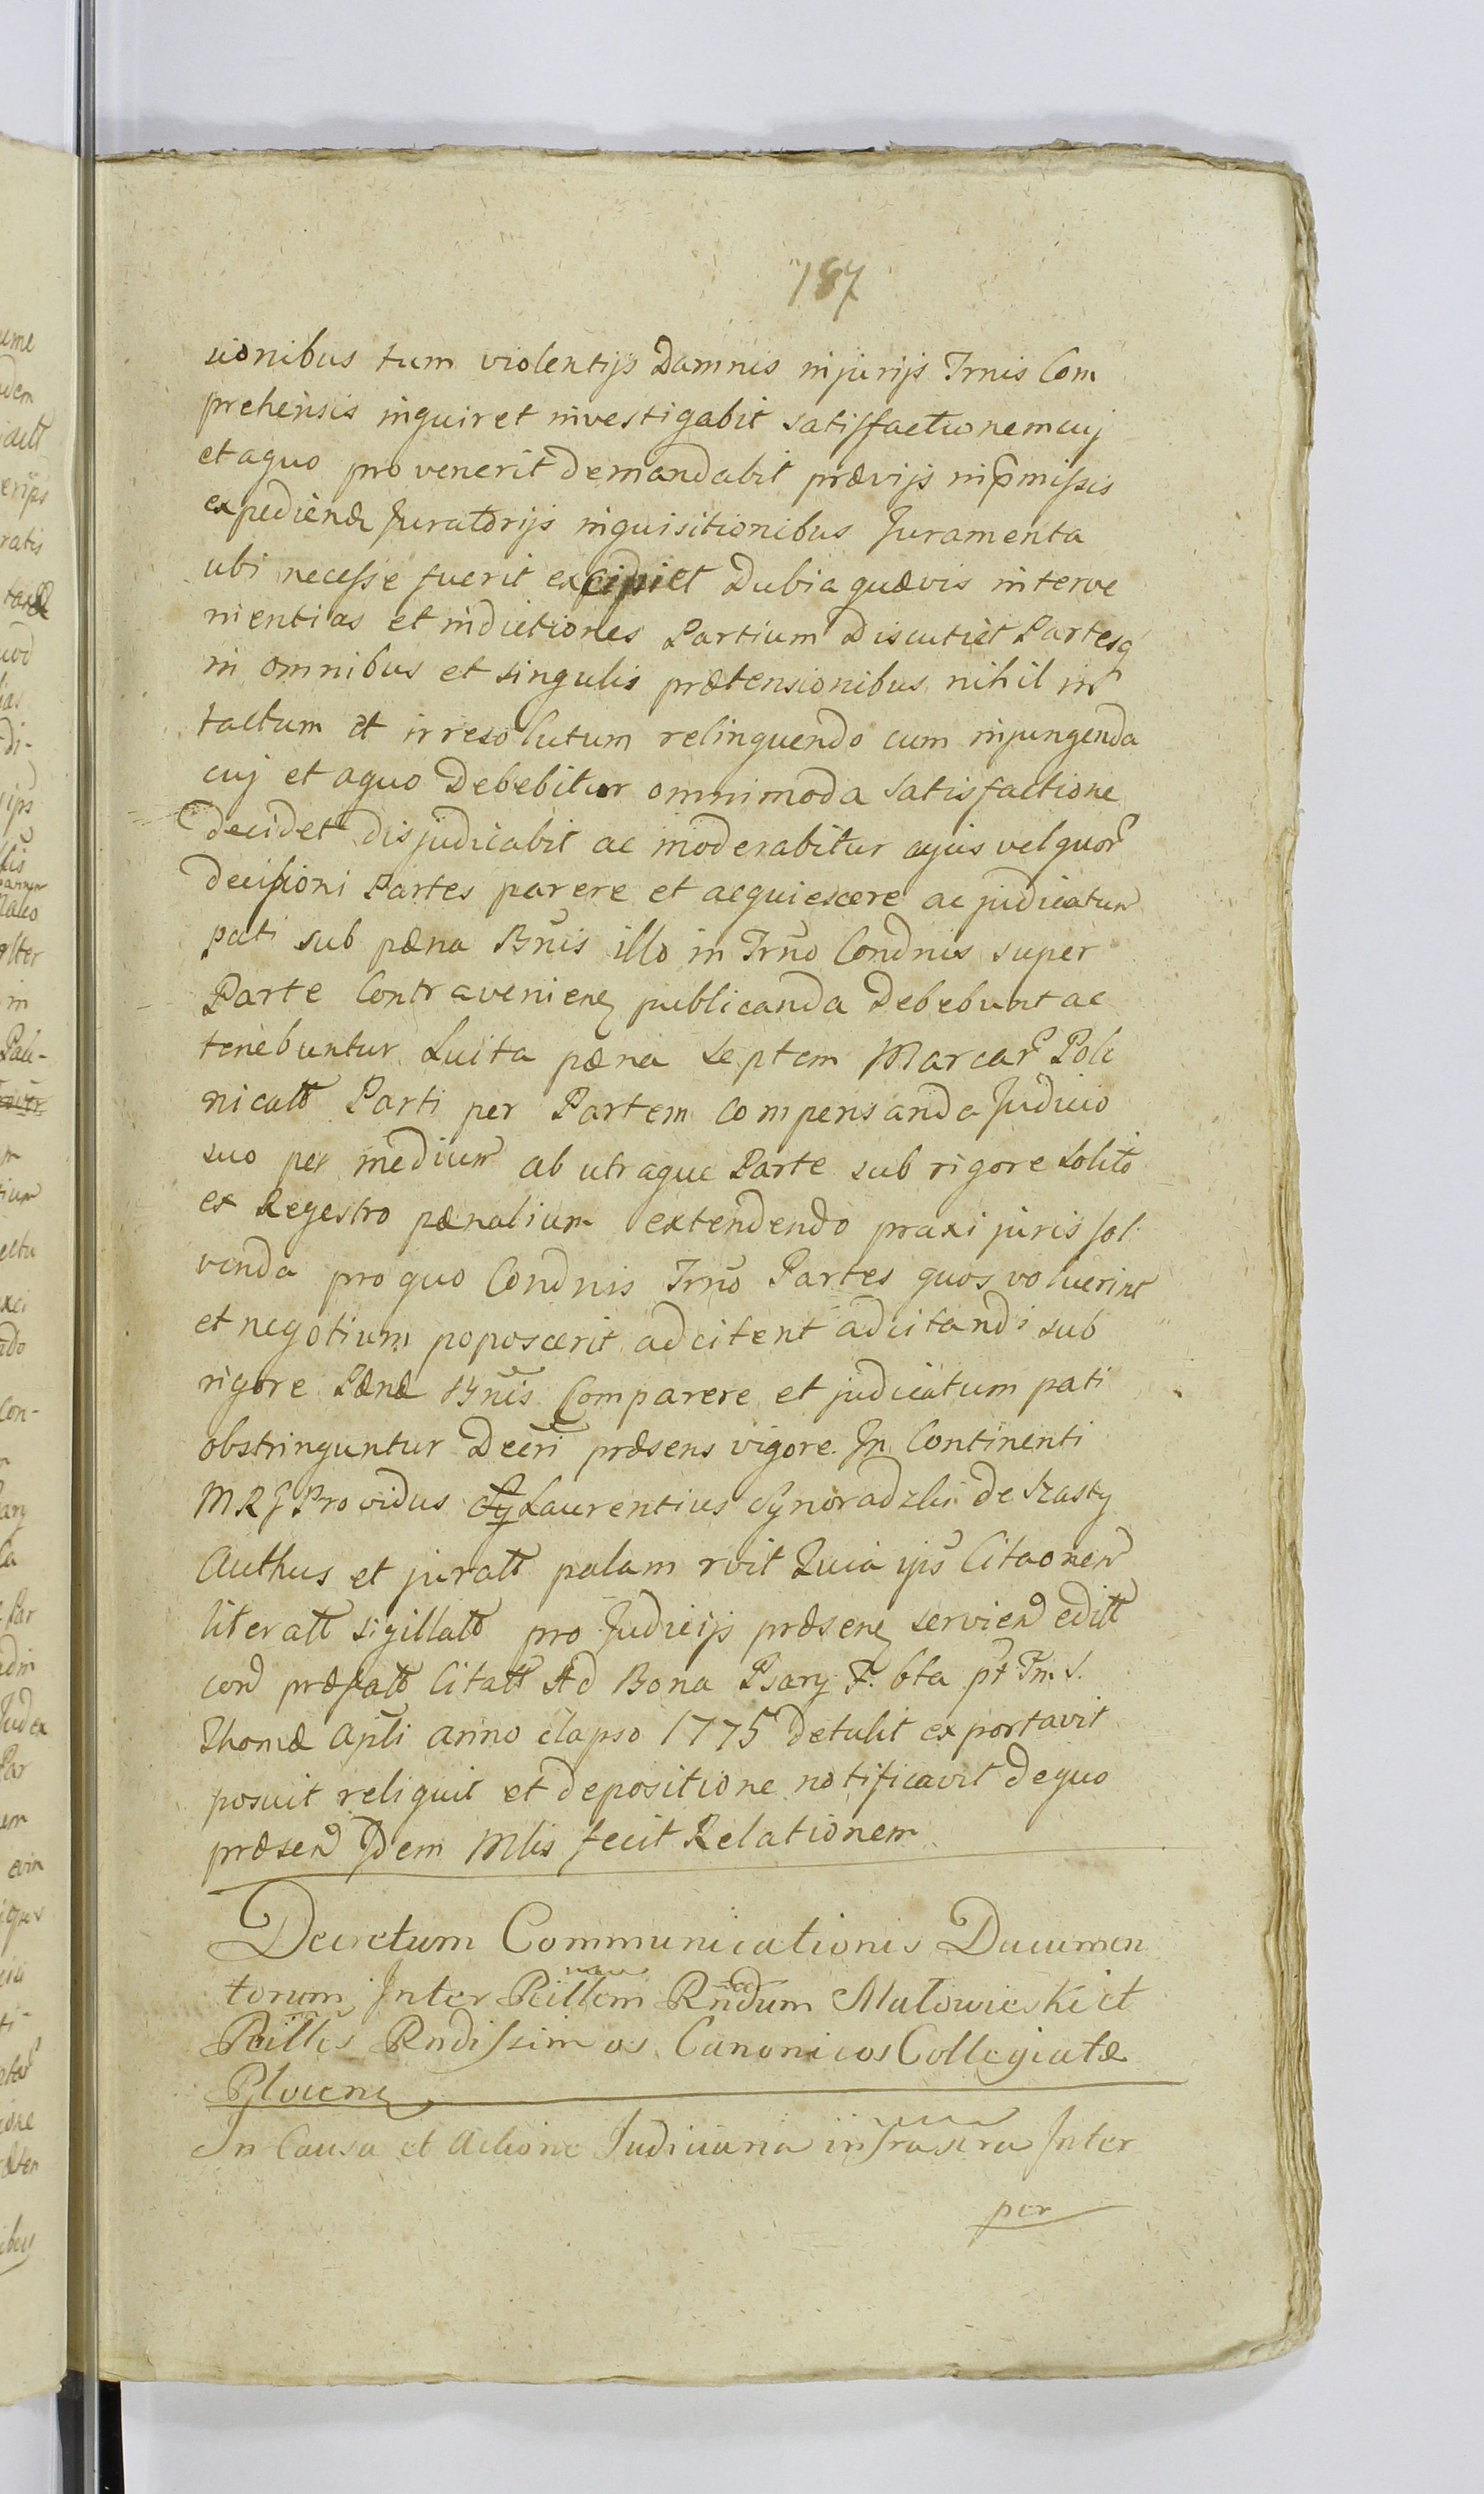 187
sionibus tum violentijs Damnis injurijs Trnis Com
prehensis inquiret investigabit satisfactionem cuj
et aquo provenerit Demandabit prævijs in pmissis
expedienđ Juratorijs inquisitionibus Juramenta
ubi necesse fuerit excipiet Dubia quævis interve
nientias et indictiones Partium Discutiet Partesq
in omnibus et singulis prætensionibus nihil in
tactum et irresolutum relinquendo cum injungenda
cuj et aquo Debebitur omnimoda satisfactione
decidet disjudicabit ac moderabitur cujus vel quor
decisioni Partes parere et acquiescere ac judicatum
pati sub pæna Bnis illo in Trno Condnis super
Parte Contravenien publicanda Debebunt ac
tenebuntur Luita pæna septem Marcar Polo
nicalt Parti per Partem compensanda Judicio
suo per medium ab utraque Parte sub rigore solito
ex Regestro pænalium extendendo praxi juris sol
venda pro quo Condnis Trno Partes quos voluerint
et negotium poposcerit adcitent adcitandi sub
rigore Pænæ Bnis Comparere et judicatum pati
obstringuntur Decri præsens vigore. In Continenti
MRJ Providus Laurentius Synoradzki de Szasty
Authus et juratt palam rvit Quia ips Citaonem
literatt sigillatt pro Judicijs præsen servien editt
con præfatt Citatt Ad Bona Psary F. 6ta pt Fm S.
Thomæ Apli anno elapso 1775 detulit exportavit
posuit reliquit et depositione notificavit dequo
præsen Idem Mlis fecit Relationem
Decretum Communicationis Documen
torum Inter Peillem Rndum Mutowieski et
Peilles Rndissimos Canonicos Collegiatæ
Plocen
In Causa et Actione Judiciaria infrascra Inter
per